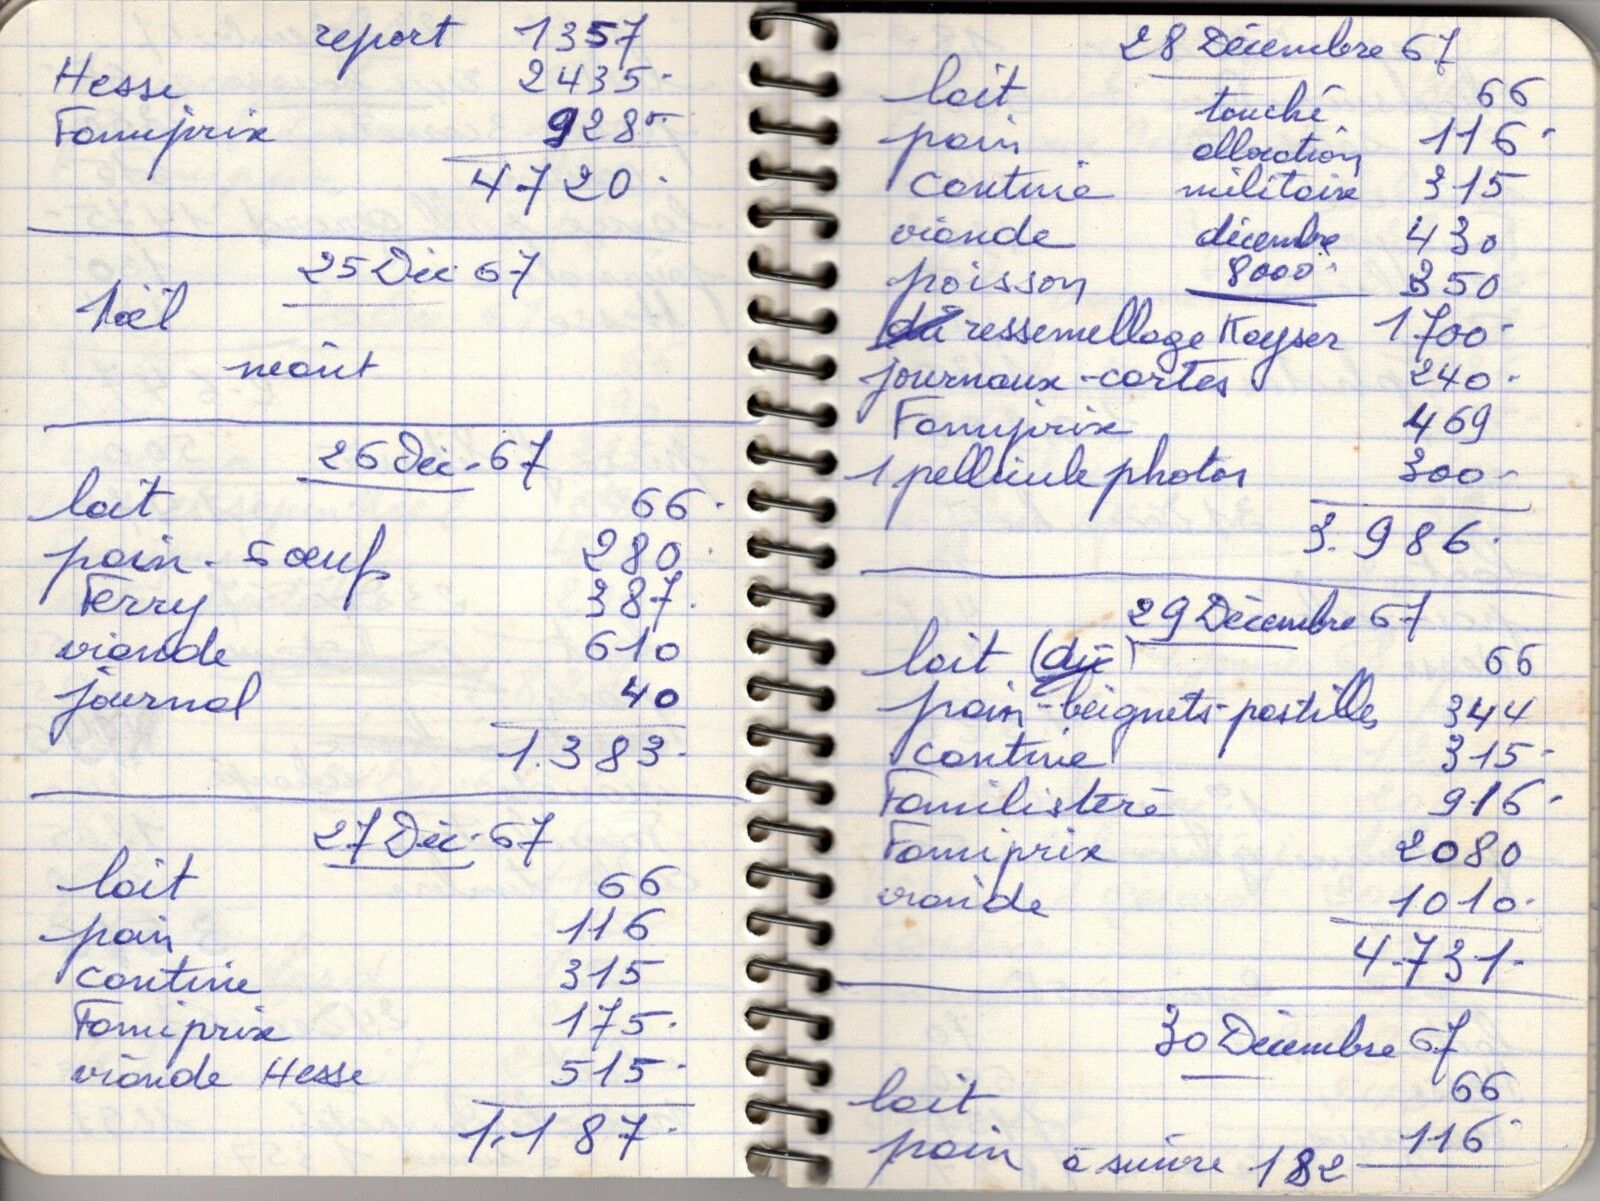 report 1357
Hesse 2435.
Famiprix 928
4720.
25 Déc 67
Noël
néant
26 Déc. 67
lait 66.
pain - 5 œufs 280.
Ferry 387.
viande 610
journal 40
1.383.
27 Déc. 67
lait 66
pain 116
cantine 315
Famiprix 175.
viande Hesse 515.
1.187.
28 Décembre 67
lait touché 66
pain allocation 116.
cantine militaire 315
viande décembre 430
poisson 8000. 350
dû ressemellage Kayser 1700.
journaux - cartes 240.
Famiprix 469
1 pellicule photos 300.
3.986.
29 Décembre 67
lait (dû) 66
pain - beignets - pastilles 344
cantine 315.
Familistère 916.
Famiprix 2080
viande 1010.
4.731.
30 Décembre 67
lait 66
pain 116.
à suivre 182